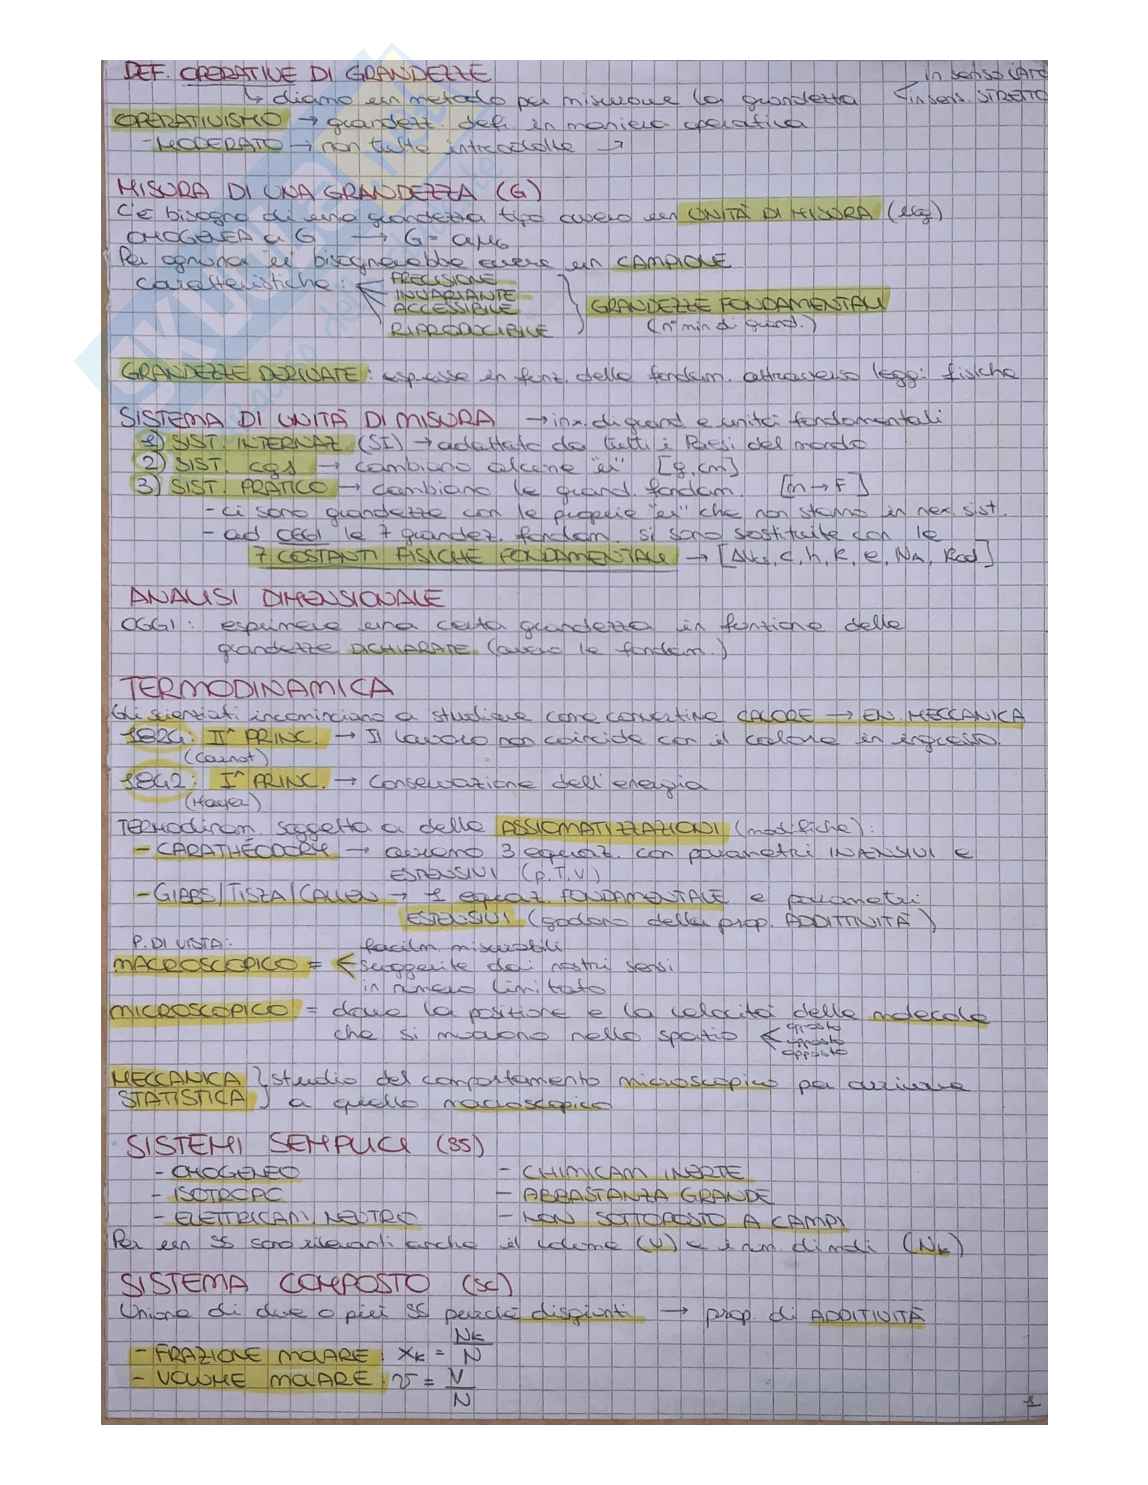 DEF. OPERATIVE DI GRANDEZZE
in senso LATO
↳ diamo un metodo per misurare la grandezza
in sens STRETTO
OPERATIVISMO → grandezz. defi. in maniera operativa
- MODERATO → non tutte introdotte →
MISURA DI UNA GRANDEZZA (G)
C'è bisogno di una grandezza tipo ovvero un UNITÀ DI MISURA (UG)
OMOGENEA a G → G = aμG
Per ognuna bisognerebbe avere un CAMPIONE
caratteristiche:
PRECISIONE
INVARIANTE
ACCESSIBILE
RIPRODUCIBILE
GRANDEZZE FONDAMENTALI
(n° min di grand.)
GRANDEZZE DERIVATE: espresse in funz. delle fondam. attraverso leggi fisiche
SISTEMA DI UNITÀ DI MISURA → ins. di grand e unità fondamentali
1) SIST. INTERNAZ (SI) → adottato da tutti i Paesi del mondo
2) SIST. cgs → cambiano alcune "u" [g, cm]
3) SIST. PRATICO → cambiano le grand. fondam. [m→F]
- ci sono grandezze con le proprie "u" che non stanno in nes. sist.
- ad OGGI le 7 grandez. fondam. si sono sostituite con le
7 COSTANTI FISICHE FONDAMENTALI → [Δνcs, c, h, k, e, NA, Kcd]
ANALISI DIMENSIONALE
OGGI: esprimere una certa grandezza in funzione delle
grandezze DICHIARATE (ovvero le fondam.)
TERMODINAMICA
Gli scienziati incominciano a studiare come convertire CALORE → EN. MECCANICA
1824: II° PRINC. → Il lavoro non coincide con il calore in ingresso.
(Carnot)
1842: I° PRINC. → Conservazione dell'energia
(Mayer)
Termodinam soggetta a delle ASSIOMATIZZAZIONI (modifiche):
- CARATHÉODORY → avremo 3 equaz. con parametri INTENSIVI e
ESTENSIVI (P,T,V)
- GIBBS/TISZA/CALLEN → 1 equaz. FONDAMENTALE e parametri
ESTENSIVI (godono della prop. ADDITTIVITÀ)
P. DI VISTA:
facilm. misurabili
MACROSCOPICO = suggerite dai nostri sensi
in numero limitato
MICROSCOPICO = dove la posizione e la velocità delle molecole
che si muovono nello spazio
opposto
MECCANICA STATISTICA } studio del comportamento microscopico per arrivare
a quello macroscopico
SISTEMI SEMPLICI (SS)
- OMOGENEO - CHIMICAM INERTE
- ISOTROPO - ABBASTANZA GRANDE
- ELETTRICAM. NEUTRO - NON SOTTOPOSTO A CAMPI
Per un SS sono rilevanti anche il volume (V) e i num. di moli (Nk)
SISTEMA COMPOSTO (SC)
Unione di due o più SS perché disgiunti → prop. di ADDITIVITÀ
- FRAZIONE MOLARE: xk = Nk/N
- VOLUME MOLARE: v = V/N
1